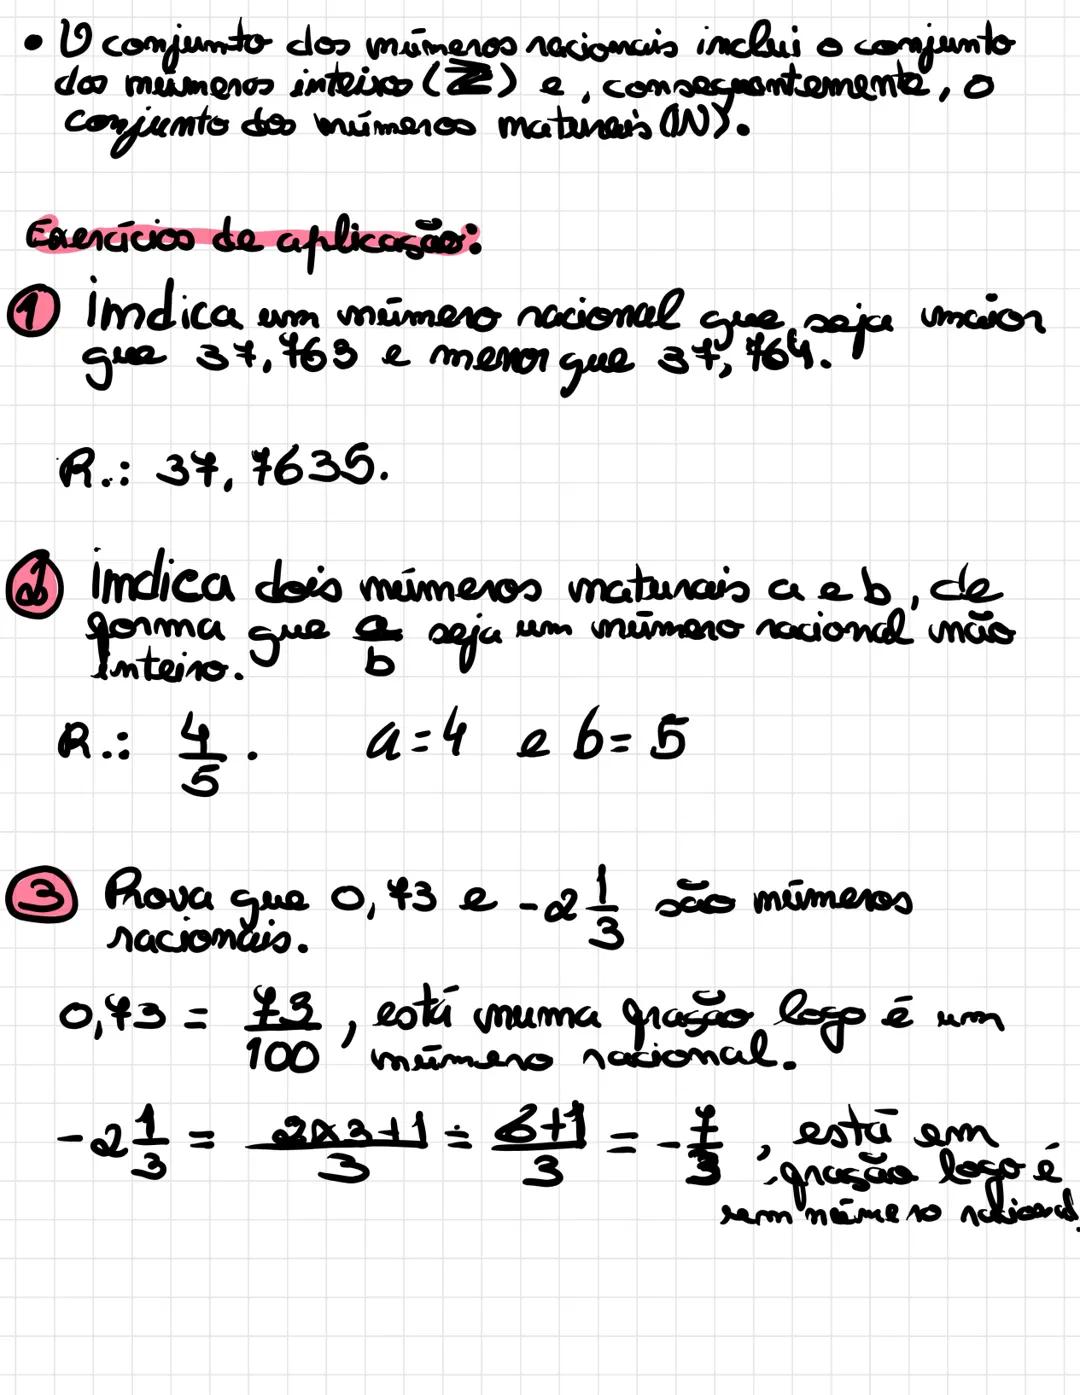 • O conjunto dos números racionais inclui o conjunto
dos números inteiros (ℤ) e, consequentemente, o
conjunto dos números naturais (ℕ).
Exercícios de aplicação:
1 Indica um número racional que seja maior
que 37,763 e menor que 37,764.
R.: 37,7635.
2 Indica dois números naturais a e b, de
forma que a/b seja um número racional não
inteiro.
R.: 4/5. a=4 e b=5
3 Prova que 0,73 e -2 1/3 são números
racionais.
0,73 = 73/100, está numa fração logo é um
número racional.
-2 1/3 = - 2x3+1/3 = 6+1/3 = -7/3, está em
fração logo é
um número racional.